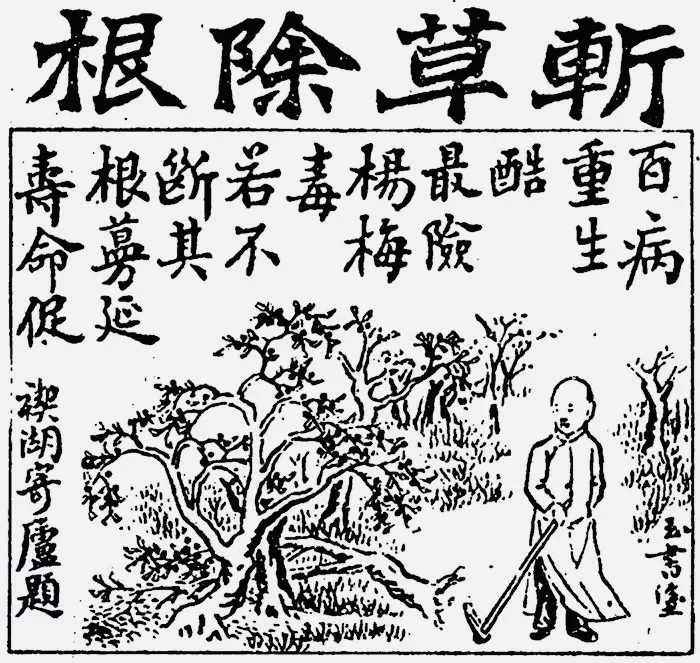 斬草除根
百病
重生
酷
最險
楊梅
毒
若不
斷其
根蔓延
壽命促
禊湖寄廬題